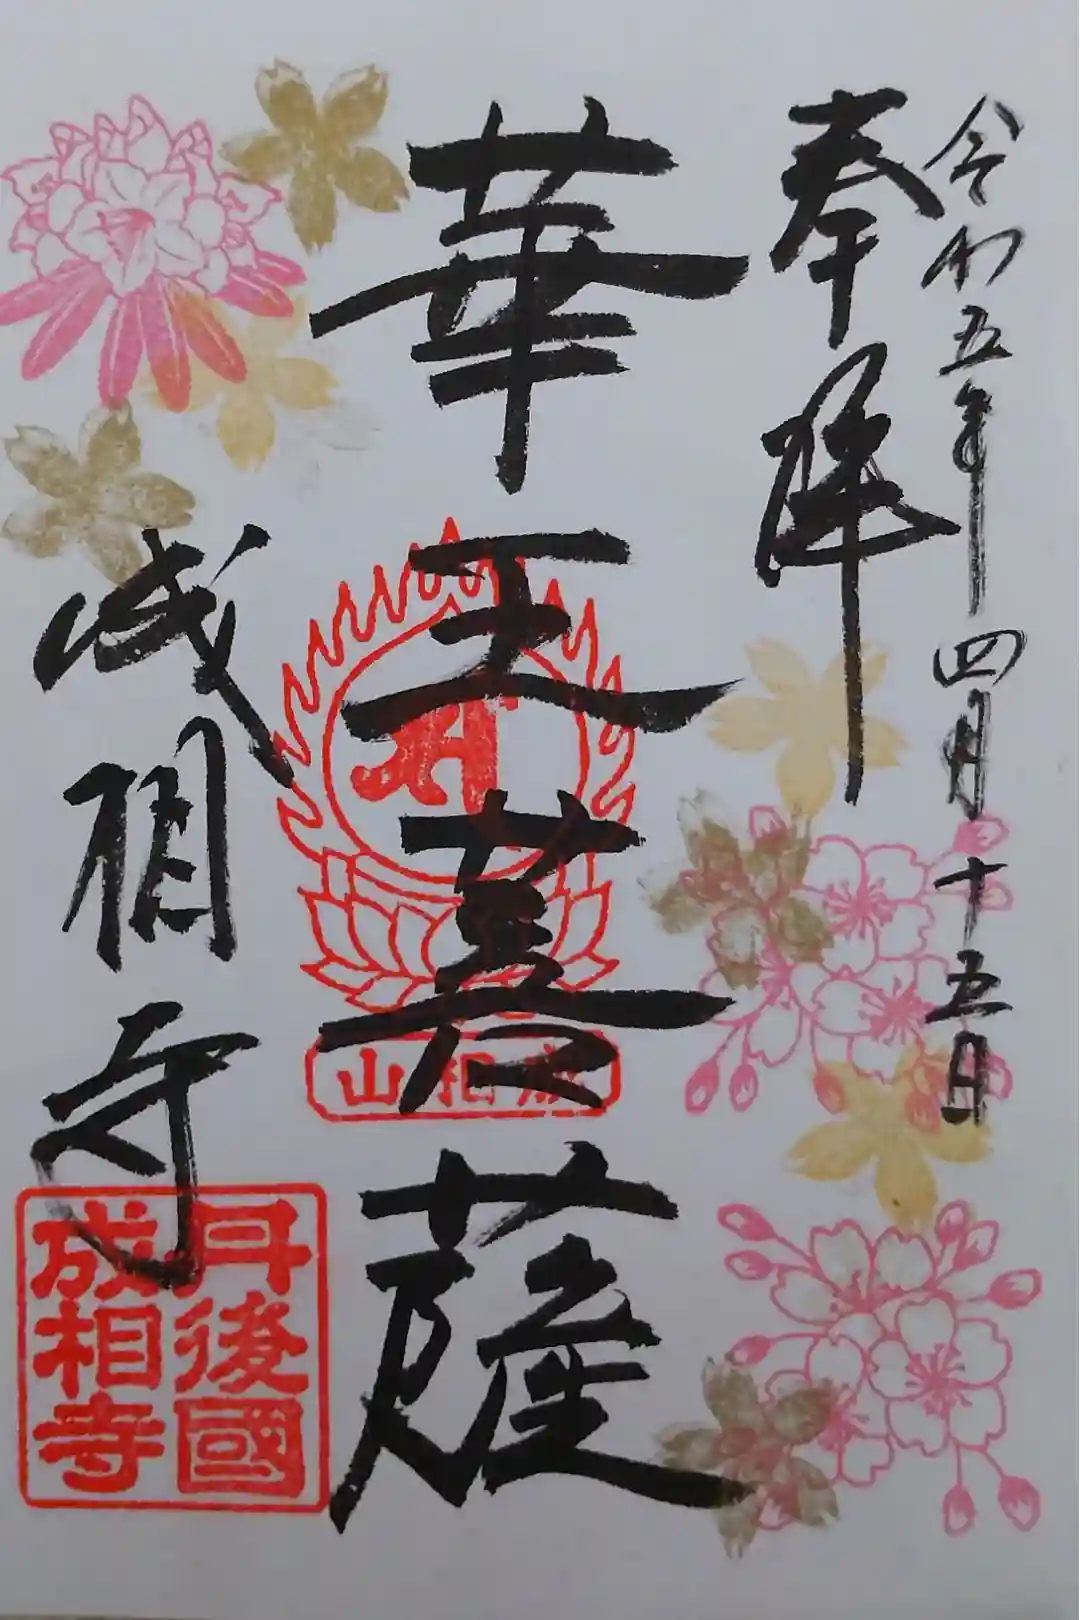 令和五年四月十五日
奉拝
華王菩薩
成相寺
成相山
丹後國
成相寺